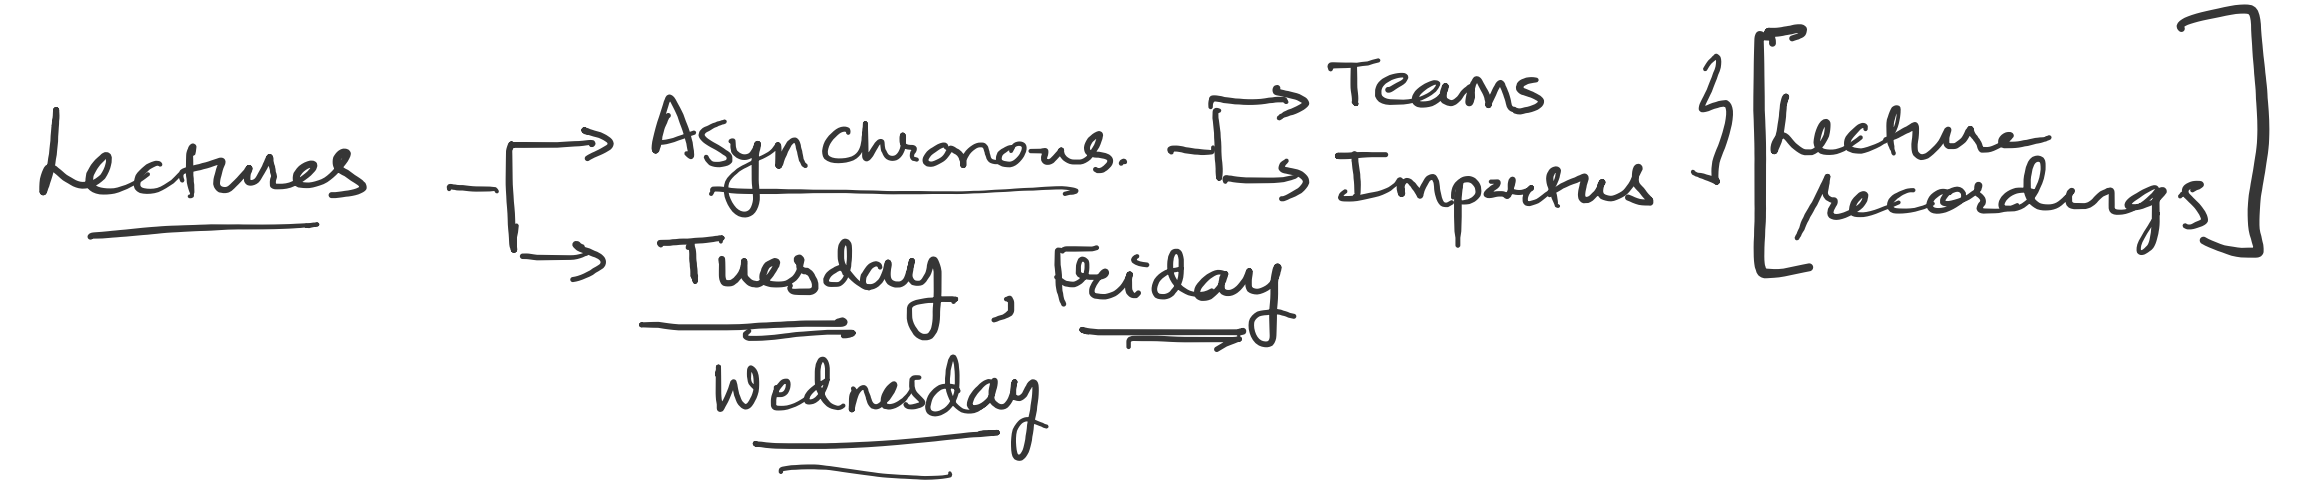 Lectures
Asynchronous.
Teams
Impartus
Lecture
recordings
Tuesday, Friday
Wednesday